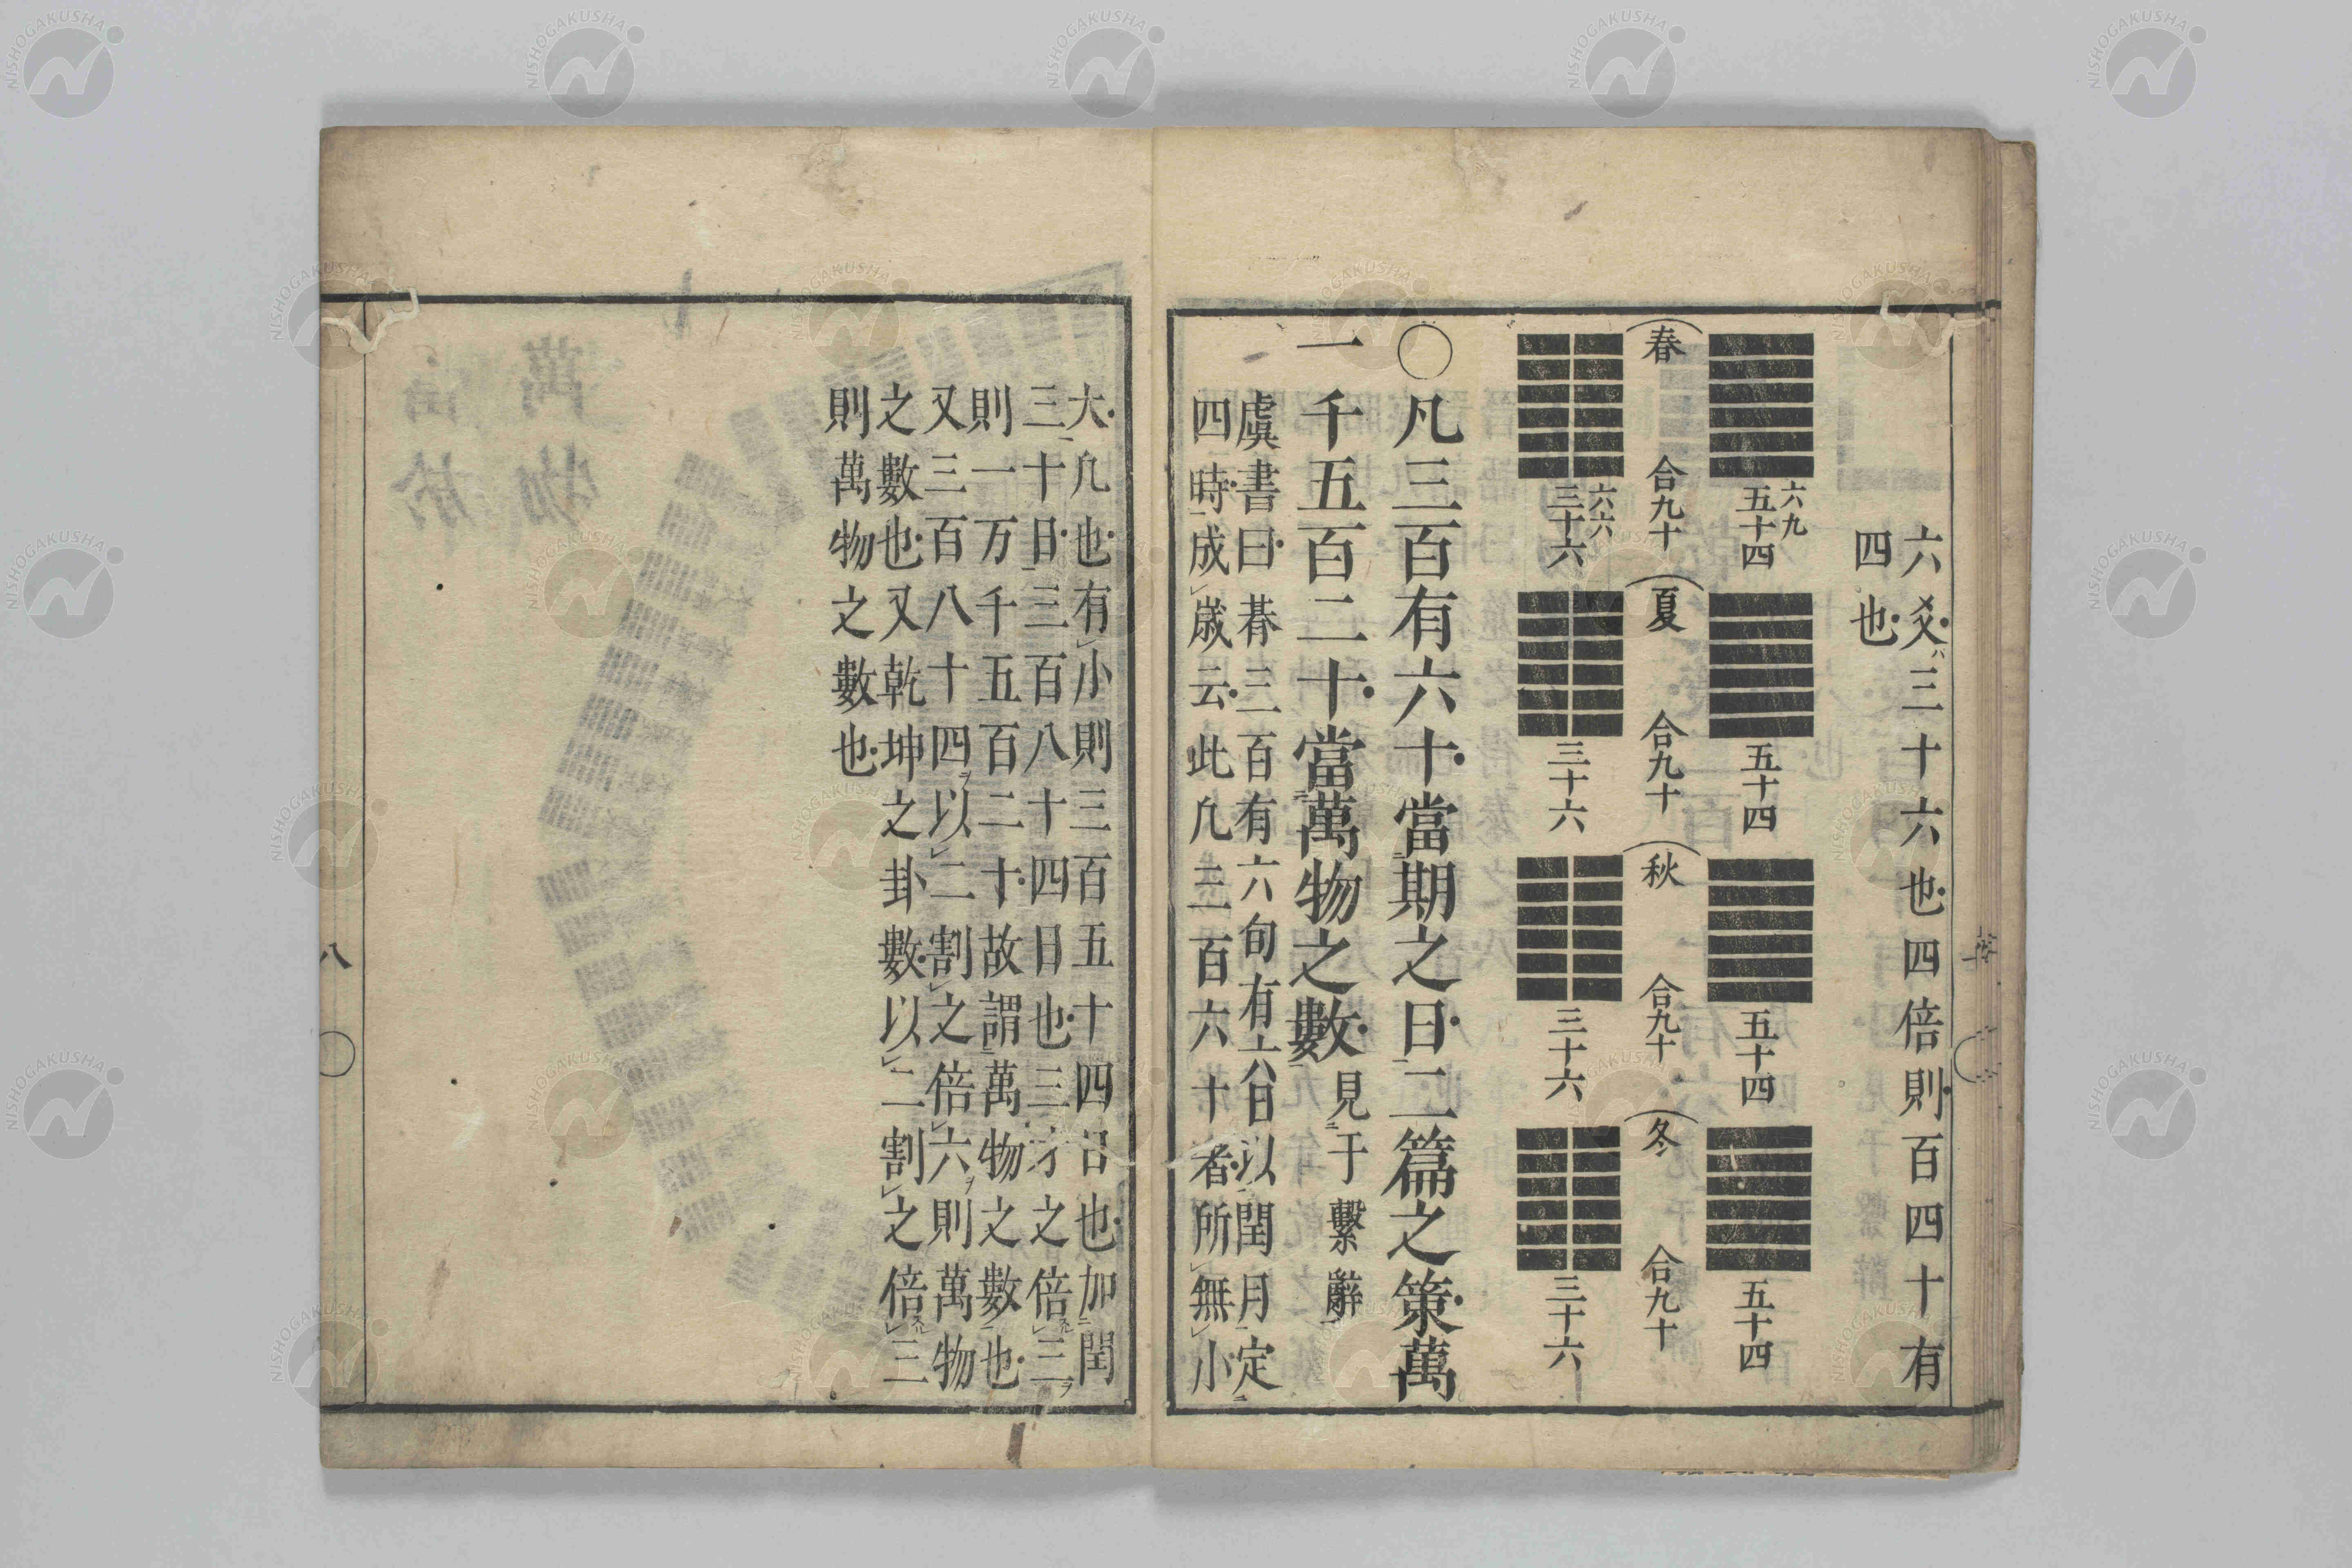 六爻ハ三十六也四倍則百四十有
四也
六九
五十四
五十四
五十四
五十四
春
合九十
夏
合九十
秋
合九十
冬
合九十
六六
三十六
三十六
三十六
三十六
〇凡三百有六十當期之日二篇之策萬
一千五百二十當萬物之數見于繫辭
虞書曰朞三百有六旬有六日以閏月定
四時成歲云此凢三百六十者所無小
大凢也有小則三百五十四日也加閏
三十日三百八十四日也三才之倍三
則一万千五百二十故謂萬物之數也
又三百八十四ヲ以二割之倍六則萬物
之數也又乾坤之卦數以二割之倍三
則萬物之數也
八
NISHOGAKUSHA